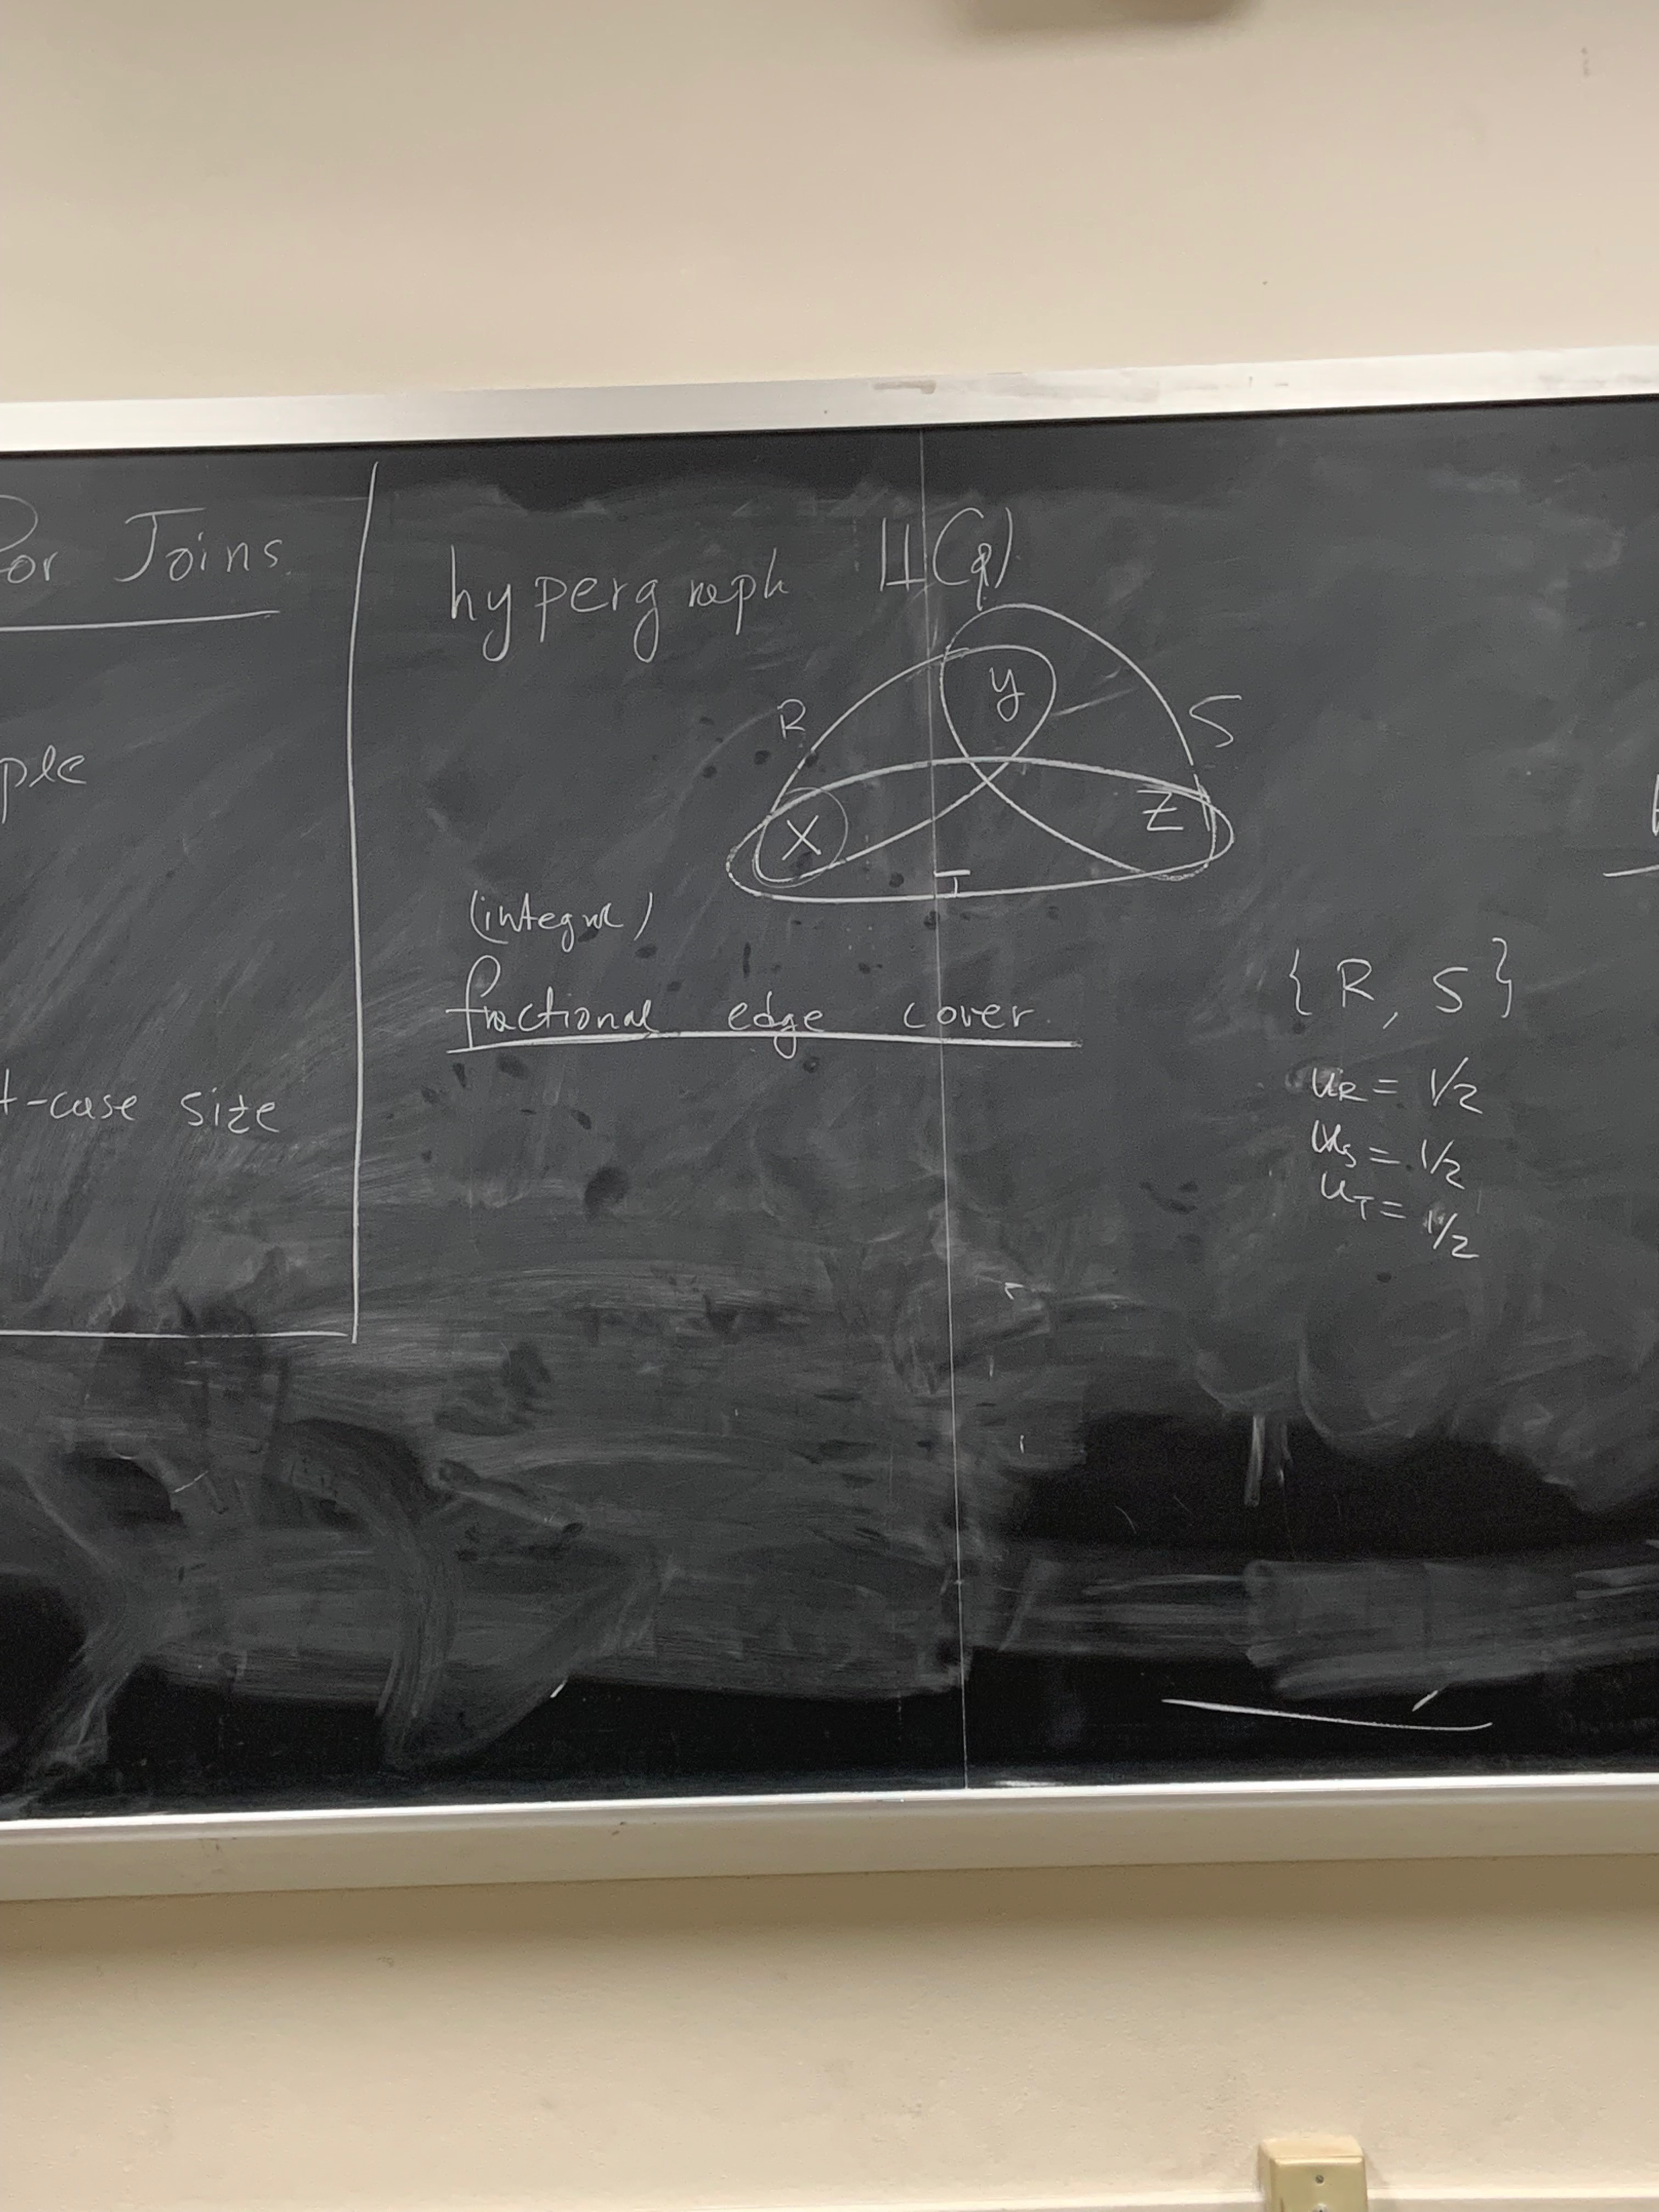 For Joins
ple
t-case size
hypergraph H(q)
R
y
S
X
Z
T
(integral)
fractional edge cover
{ R, S }
u_R = 1/2
u_S = 1/2
u_T = 1/2